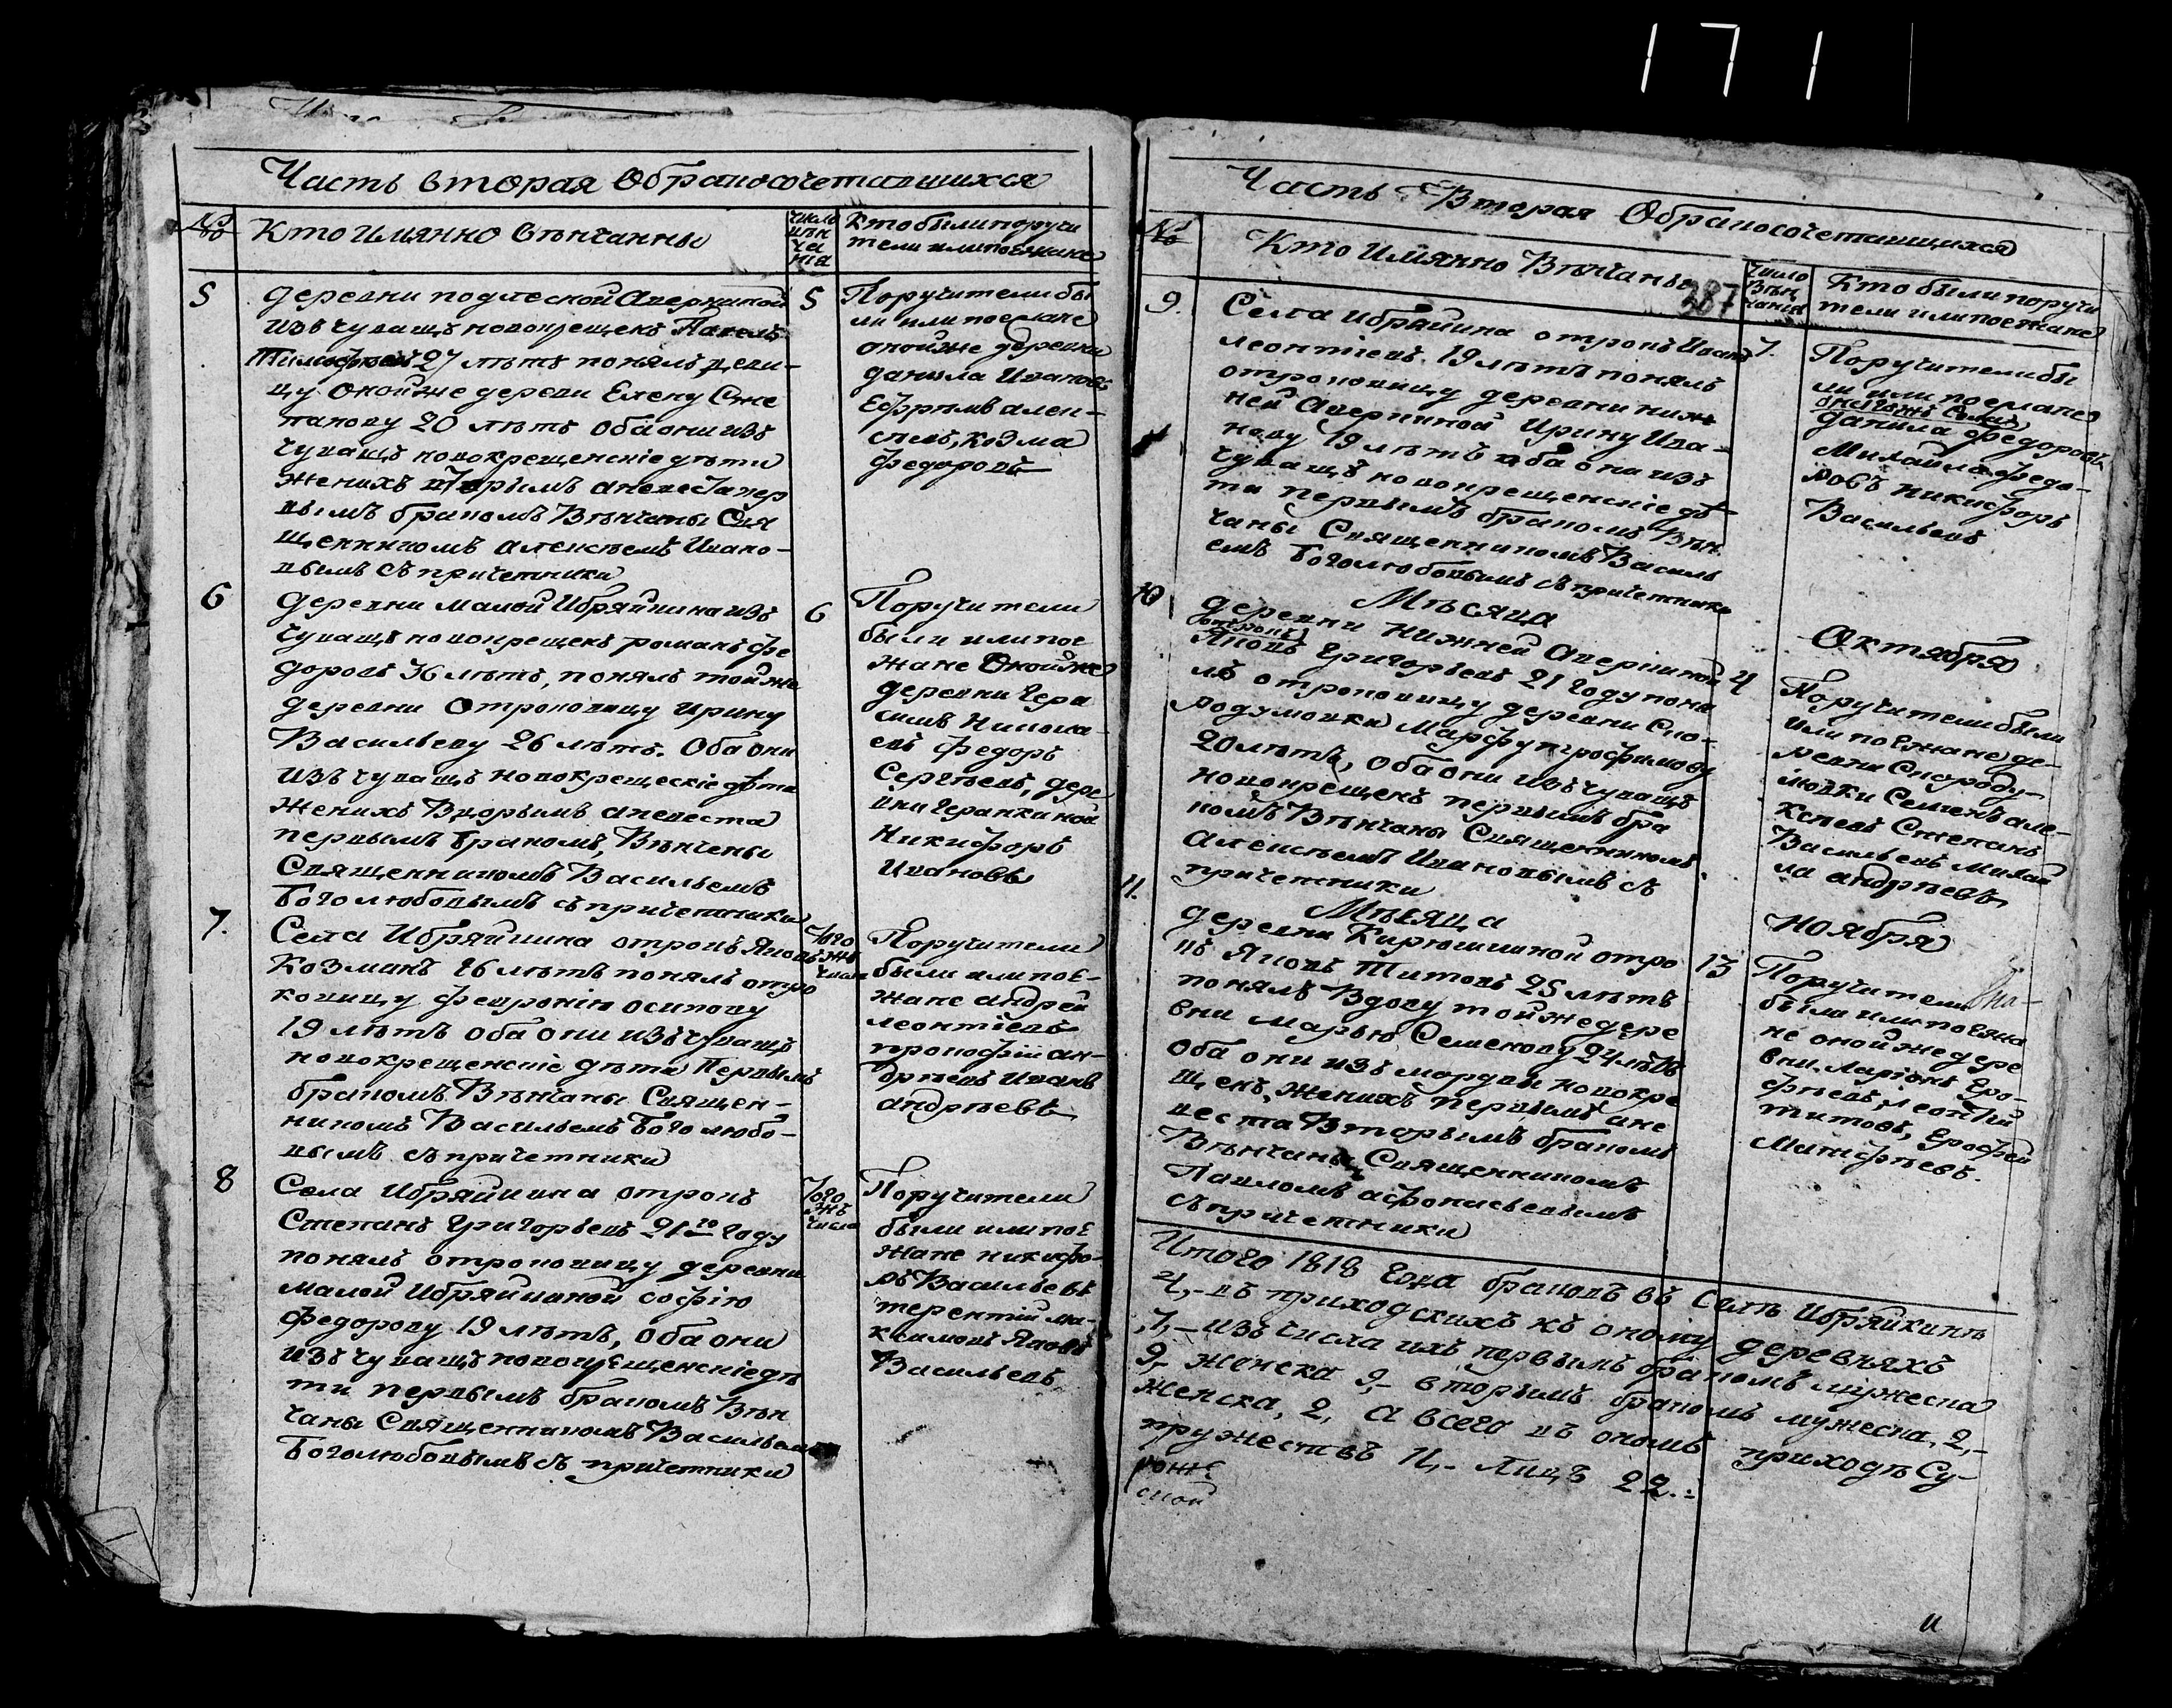 171
Часть вторая Обракосочетавшихся
№
Кто имянно венчанны
число
вѣн
ча
нія
Кто были поручи
тели или поезжане
5
деревни подлесной Аверкиной
изъ чувашъ новокрещенъ Павелъ
27 лѣтъ понялъ деви-
цу оной же деревни Елену Сте
панову 20 лѣтъ оба они изъ
чувашъ новокрещенскіе дѣти
женихъ вторымъ а невеста пер
вымъ бракомъ Вѣнчаны Свя
щенникомъ алексѣемъ Ивано-
вымъ съ причетники
5
Поручители бы
ли или поезжане
оной же деревни
данила Ивановъ
Ефрѣмъ алек-
сѣевъ, козма
федоровъ
6
деревни малой Ибряйкина изъ
чувашъ новокрещенъ романъ фе
доровъ 36 лѣтъ, понялъ той же
деревни Отроковицу ирину
Васильеву 26 лѣтъ. Оба они
изъ чувашъ новокрещескіе дѣти
женихъ Вторымъ а невеста
первымъ бракомъ, Вѣнчены
Священникомъ Васильемъ
Боголюбовымъ съ причетники
6
Поручители
были или пое
жане Оной же
деревни Гера
симъ Никола-
евъ федоръ
Сергѣевъ, дере
вни Геранкиной
Никифоръ
Ивановъ
7.
Села Ибряйкина отрокъ Яковъ
Козминъ 26 лѣтъ понялъ отро
ковицу февронію осипову
19 лѣтъ оба они изъ чувашъ
новокрещенскіе дѣти Первымъ
бракомъ Вѣнчаны Священ-
никомъ Васильемъ Боголюбо-
вымъ съ причетники
Того
жъ
числа
Поручители
были или пое-
жане андрей
леонтіевъ
прокофій ан-
дрѣевъ Иванъ
андрѣевъ
8
Села Ибряйкина отрокъ
Степанъ Григорьевъ 21го году
понялъ отроковицу деревни
малой Ибряйкиной софію
Федорову 19 лѣтъ, оба они
изъ чувашъ новокрещенскіе дѣ
ти первымъ бракомъ Вѣн
чаны Священникомъ Васильемъ
Боголюбовымъ съ причетники
Того
жъ
числа
Поручители
были или пое
жане никифо-
ръ Васильевъ
терентій ма-
ксимовъ Яковъ
Васильевъ
Часть Вторая Обракосочетавшихся
№
Кто Имянно Вѣнчаны
387
Число
Вѣн
чанія
Кто были поручи
тели или поезжане
9.
Села ибряйкина отрокъ Иванъ
леонтіевъ 19 лѣтъ понялъ
отроковицу деревни ниж
ней Аверкиной Ирину Ива-
нову 19 лѣтъ оба они изъ
чувашъ новокрещенскіе дѣ
ти первымъ бракомъ Вѣн
чаны Священникомъ Василь
емъ Боголюбовымъ съ причетники
7.
Поручители бы
ли или поезжане
онагожъ Села
данила федоровъ
Михайла федо-
ровъ никифоръ
Васильевъ
Мѣсяца
Октября
10
деревни Нижней Аверкиной
отрокъ
Яковъ Григорьевъ 21 году поня
лъ отроковицу деревни Ско-
родумовки Марфу трофимову
20 лѣтъ, оба они изъ чувашъ
новокрещенъ первымъ бра
комъ Вѣнчаны Священникомъ
Алексѣемъ Ивановымъ съ
причетники
4
Поручители были
или поезжане де-
ревни Скороду-
мовки Семенъ але-
ксѣевъ Степанъ
Васильевъ Михай
ла андрѣевъ
Мѣсяца
Ноября
11.
деревни Кирюшкиной отро
къ Яковъ Титовъ 25 лѣтъ
понялъ Вдову той же дере
вни Марью Семенову 24 лѣтъ
оба они изъ мордвы новокре
щенъ, Женихъ первымъ а не
веста Вторымъ бракомъ
Вѣнчаны Священникомъ
Павломъ афонасьевымъ
съ причетники
13
Поручители
были или поезжа
не оной же дере
вни, Ларіонъ Еро-
фѣевъ, леонтій
титовъ, Ерофей
Митифѣевъ.
Итого 1818 Года браковъ въ Селѣ Ибряйкинѣ
4,- въ приходскихъ къ оному деревняхъ
,7,- изъ числа ихъ первымъ бракомъ мужеска
9,- женска 9,- вторымъ бракомъ мужеска, 2,-
женска, 2, а всего въ ономъ приходѣ Су-
пружествъ 11,- Лицъ 22.